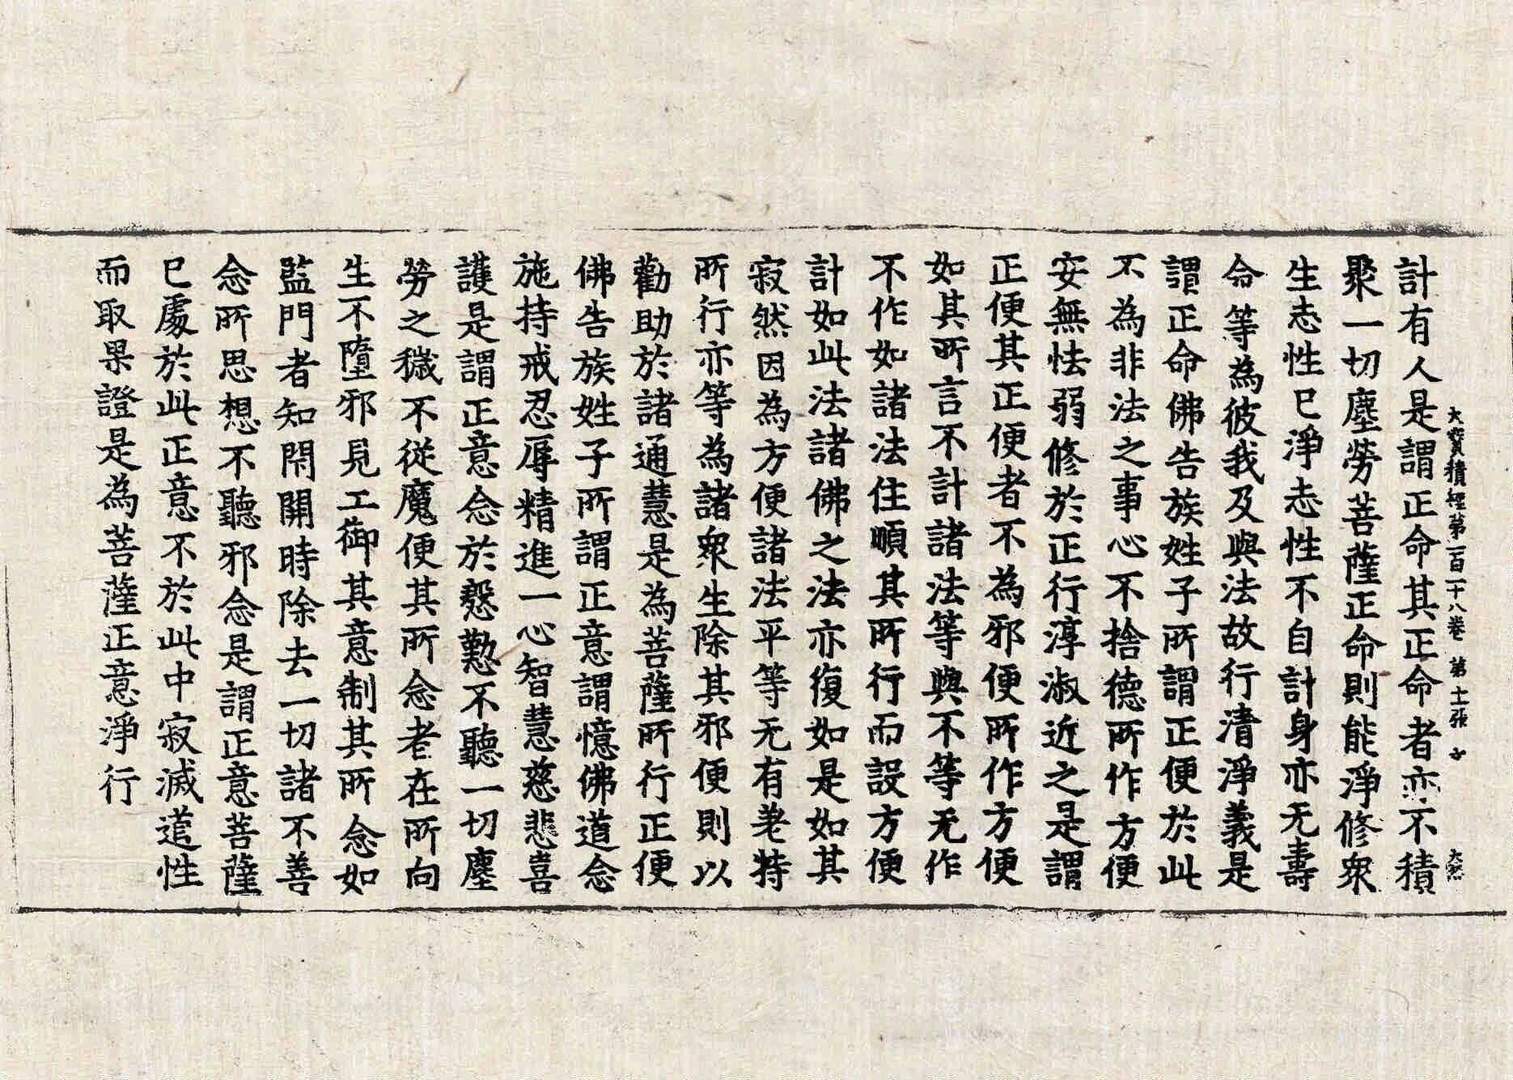 大寳積經第一百一十八卷 第十二張 大然
計有人是謂正命其正命者亦不積
聚一切塵勞菩薩正命則能淨修衆
生志性已淨志性不自計身亦无壽
命等為彼我及與法故行清淨義是
謂正命佛告族姓子所謂正便於此
不為非法之事心不捨德所作方便
安無怯弱修於正行淳淑近之是謂
正便其正便者不為邪便所作方便
如其所言不計諸法等與不等无作
不作如諸法住順其所行而設方便
計如此法諸佛之法亦復如是如其
寂然因為方便諸法平等无有差特
所行亦等為諸衆生除其邪便則以
勸助於諸通慧是為菩薩所行正便
佛告族姓子所謂正意謂憶佛道念
施持戒忍辱精進一心智慧慈悲喜
護是謂正意念於慇懃不聽一切塵
勞之穢不從魔便其所念者在所向
生不墮邪見工御其意制其所念如
監門者知閇開時除去一切諸不善
念所思想不聽邪念是謂正意菩薩
已處於此正意不於此中寂滅道性
而取果證是為菩薩正意淨行